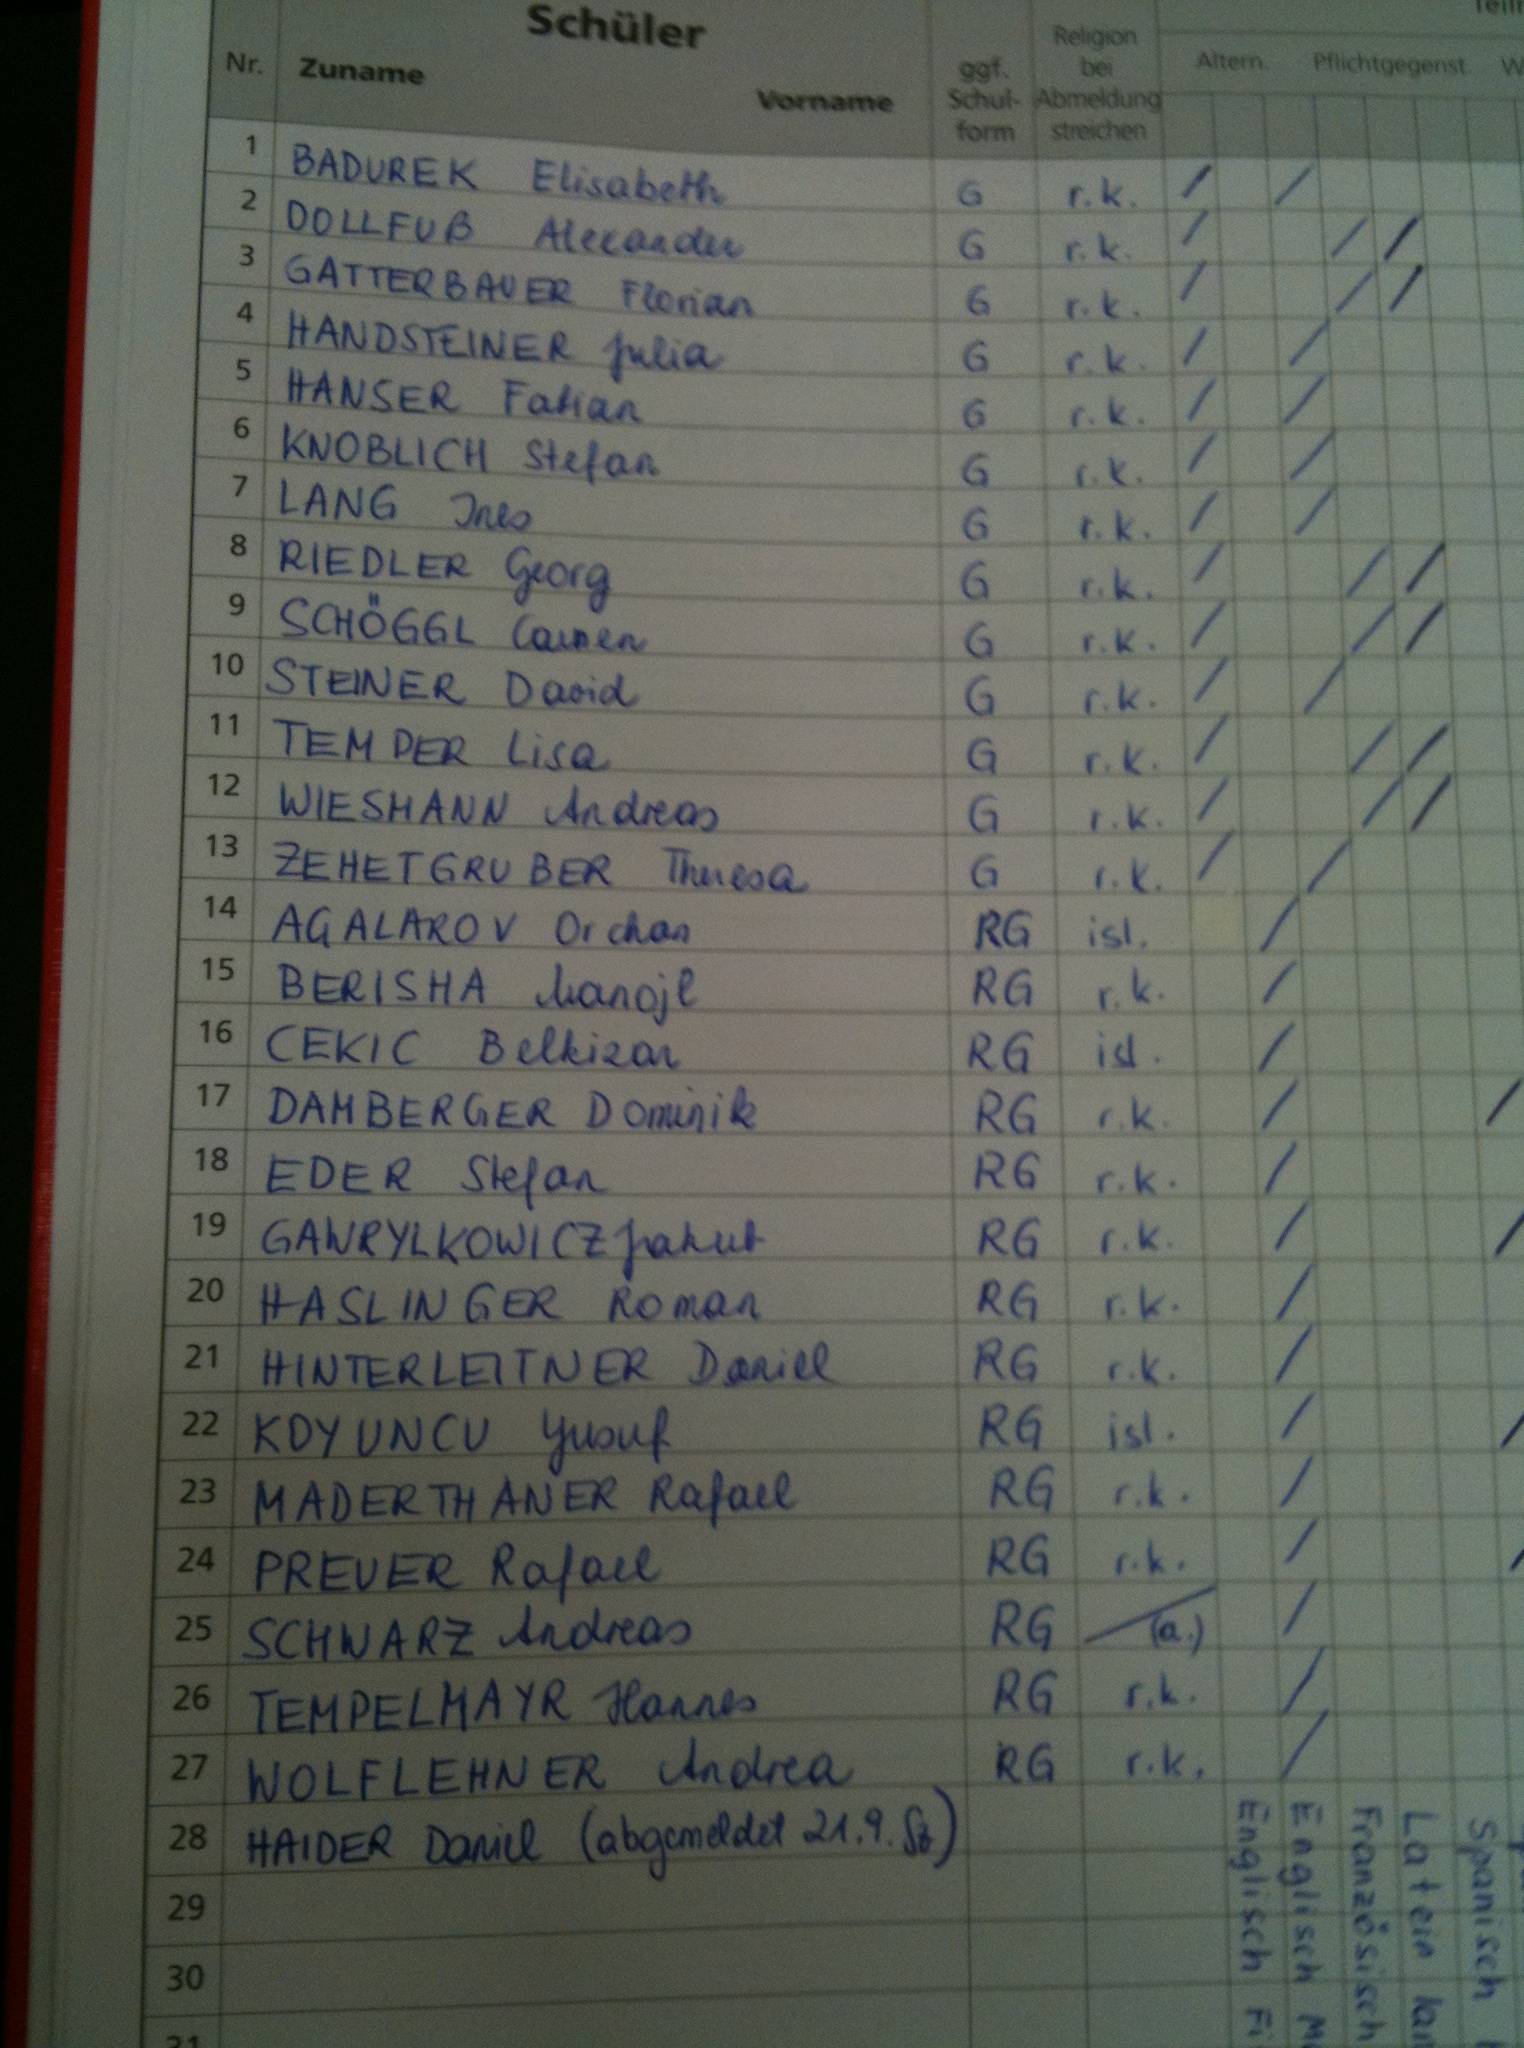 Schüler
Nr. Zuname Vorname ggf. Schul- form Religion bei Abmeldung streichen Altern. Pflichtgegenst. W
1 BADUREK Elisabeth G r.k. / /
2 DOLLFUß Alexander G r.k. / / /
3 GATTERBAUER Florian G r.k. / / /
4 HANDSTEINER Julia G r.k. / /
5 HANSER Fabian G r.k. / /
6 KNOBLICH Stefan G r.k. / /
7 LANG Ines G r.k. / /
8 RIEDLER Georg G r.k. / / /
9 SCHÖGGL Carmen G r.k. / / /
10 STEINER David G r.k. / /
11 TEMPER Lisa G r.k. / / /
12 WIESMANN Andreas G r.k. / / /
13 ZEHETGRUBER Theresa G r.k. / /
14 AGALAROV Orchan RG isl. /
15 BERISHA Manojl RG r.k. /
16 CEKIC Belkizan RG isl. /
17 DAMBERGER Dominik RG r.k. / /
18 EDER Stefan RG r.k. /
19 GAWRYLKOWICZ Jakub RG r.k. / /
20 HASLINGER Roman RG r.k. /
21 HINTERLEITNER Daniel RG r.k. /
22 KOYUNCU Yusuf RG isl. / /
23 MADERTHANER Rafael RG r.k. /
24 PREUER Rafael RG r.k. / /
25 SCHWARZ Andreas RG (a.) /
26 TEMPELMAYR Hannes RG r.k. /
27 WOLFLEHNER Andrea RG r.k. /
28 HAIDER Daniel (abgemeldet 21.9. )
29
30
31
Englisch
Englisch
Französisch
Latein
Spanisch